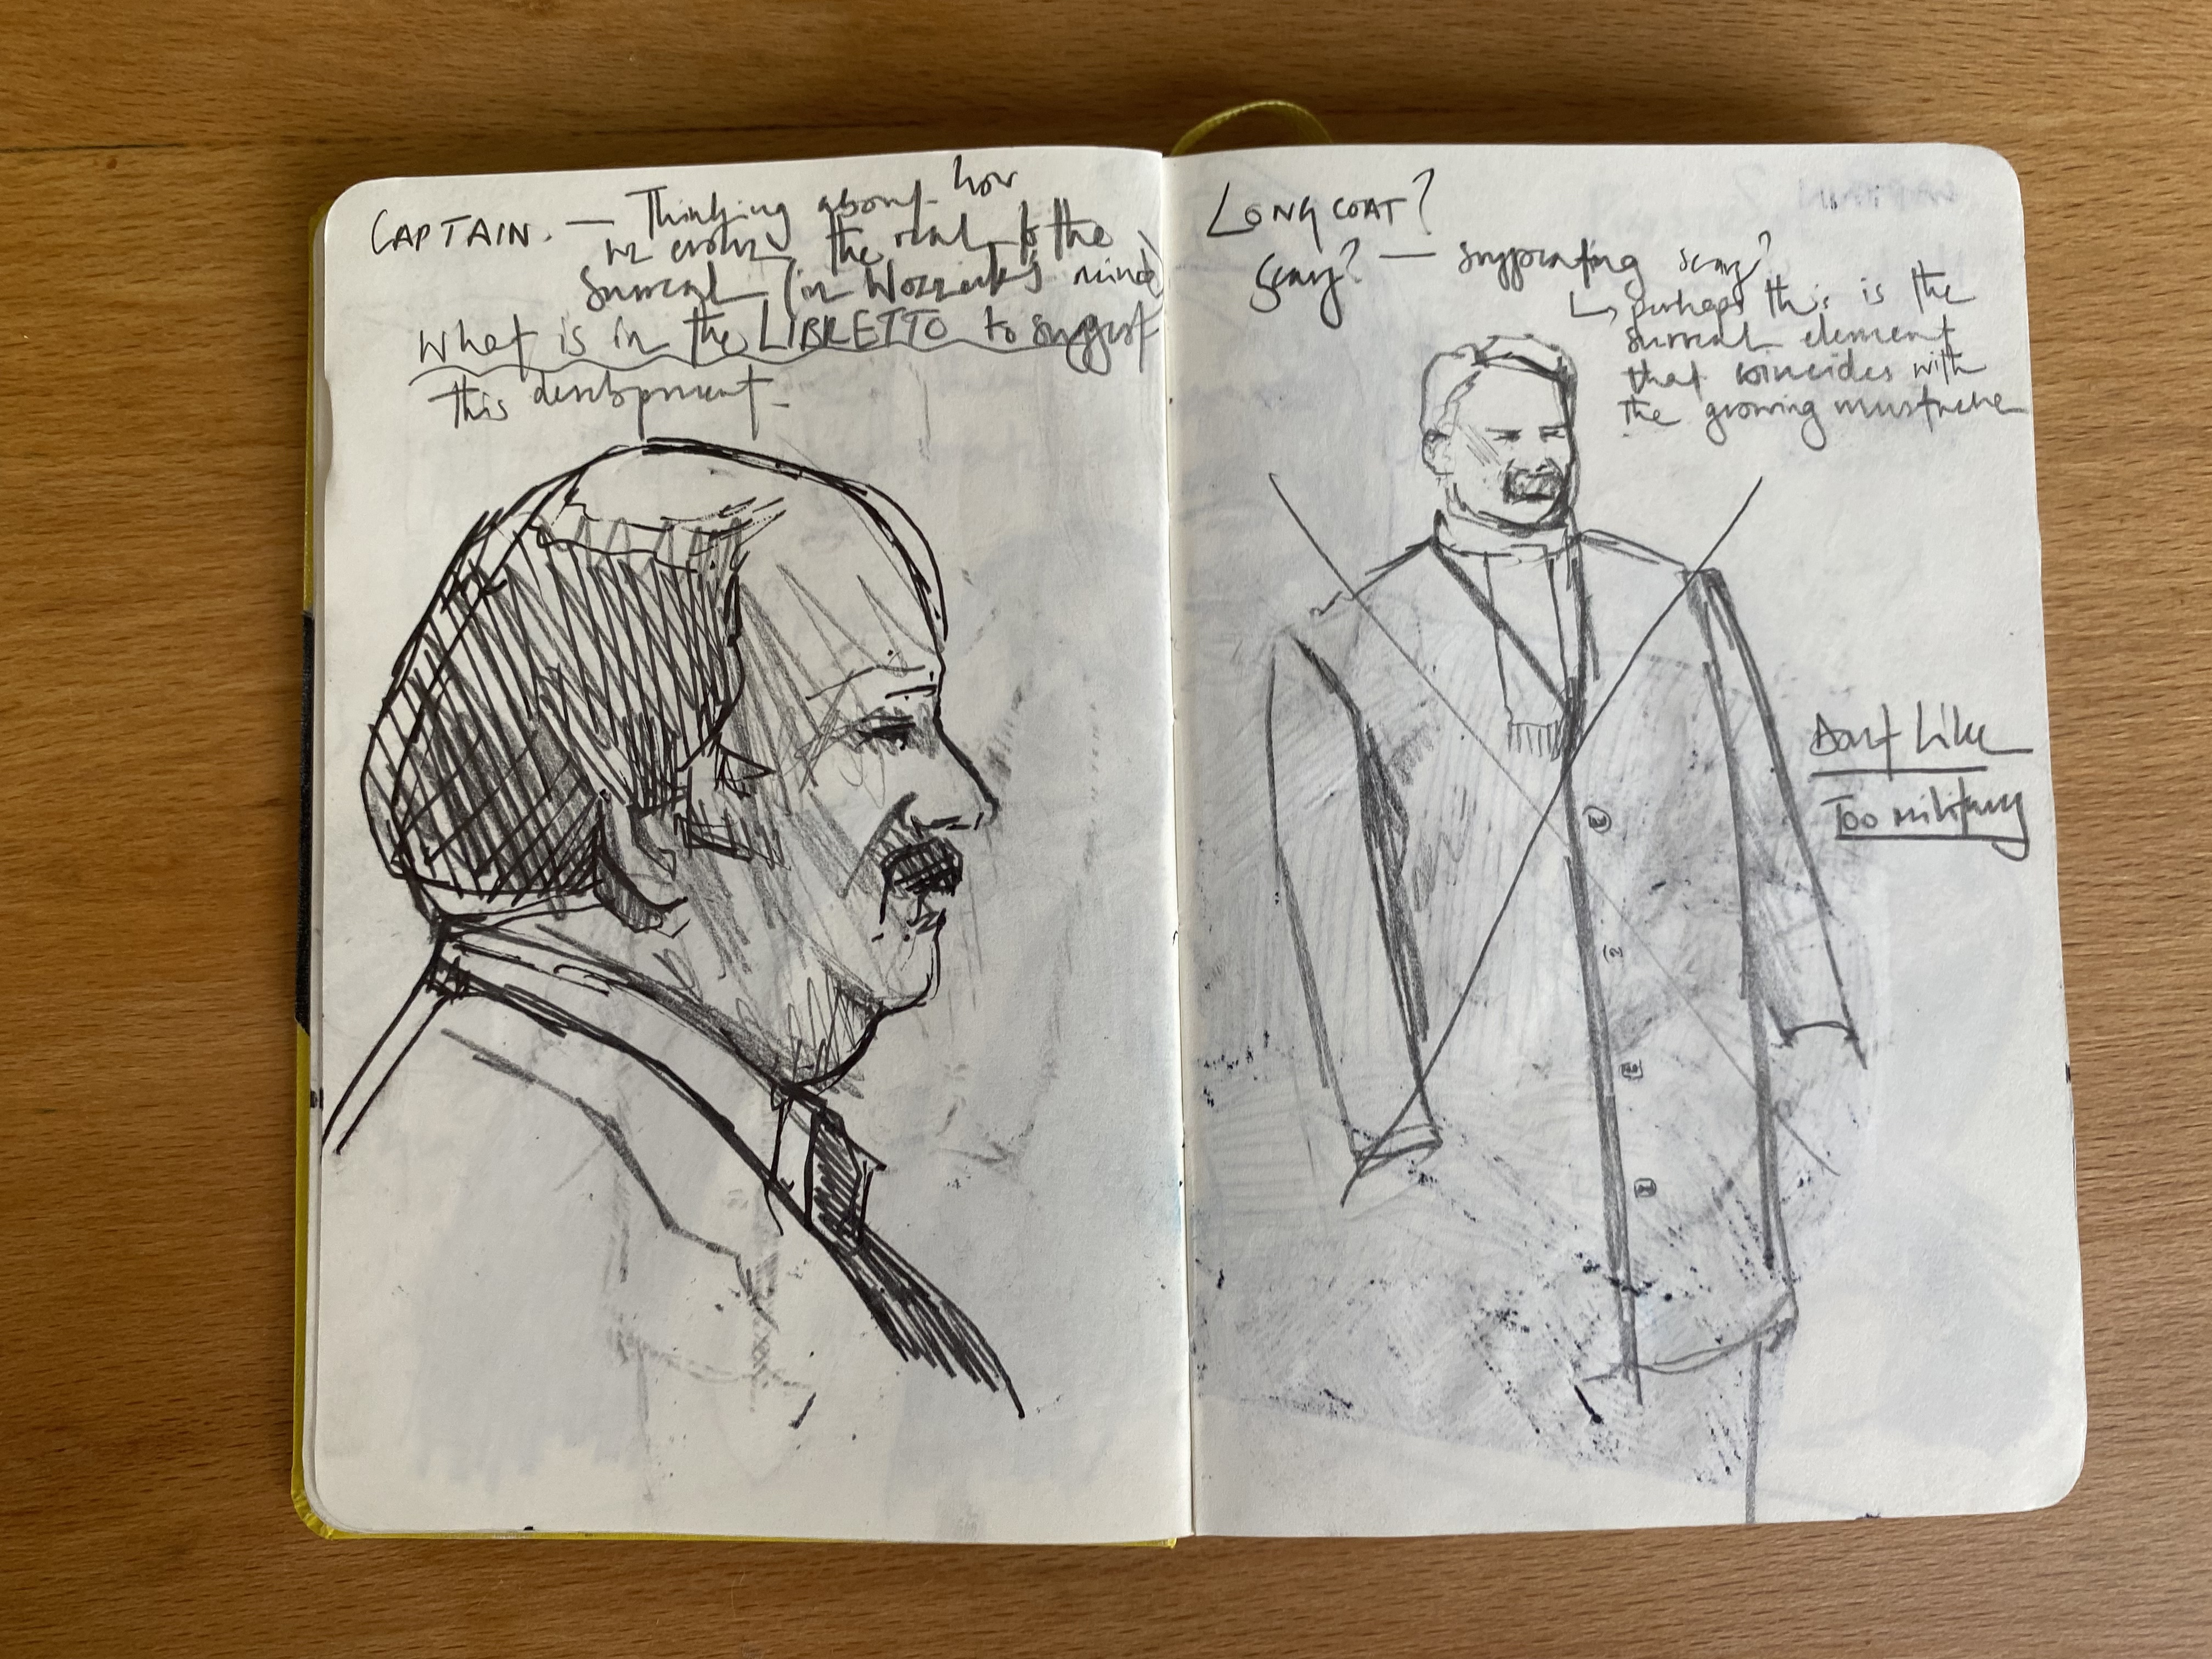 CAPTAIN. — Thinking about how
we evolve the real to the
Surreal (in Wozzeck's mind)
What is in the LIBRETTO to suggest
this development -
LONG COAT?
Scary? — suppurating scary?
↳ perhaps this is the
surreal element
that coincides with
the growing mustache
Dont Like
Too military